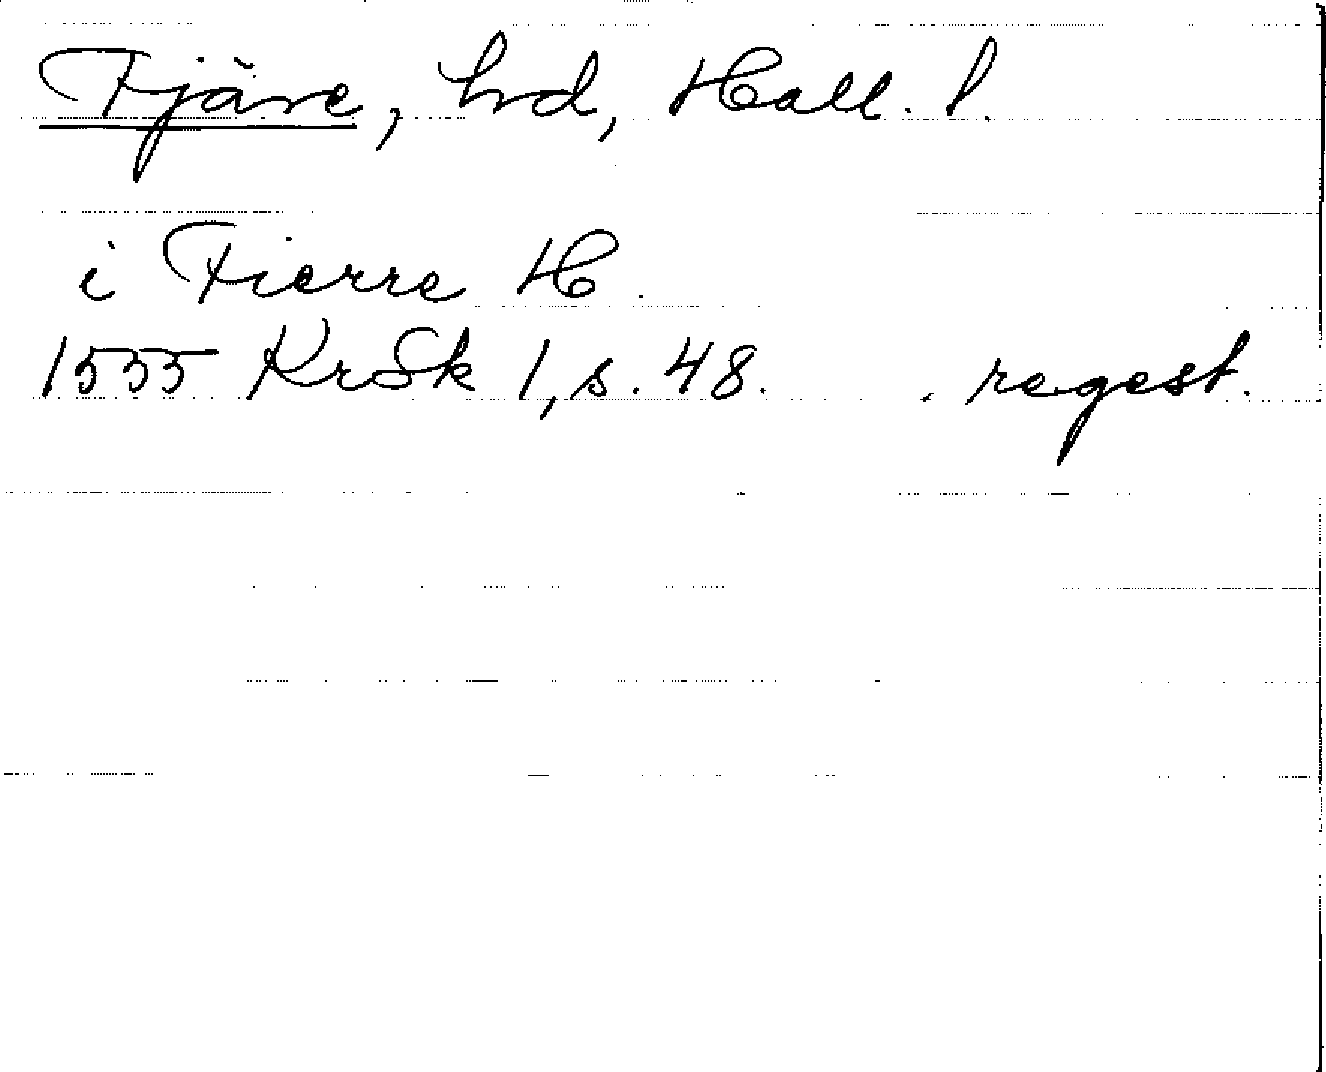 Fjäre, hd, Hall. l.
i Fierre H.
1555 KrSk 1, s. 48. regest.